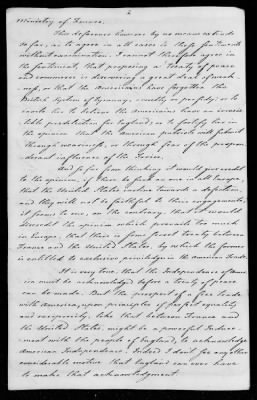 2
Ministry of France.
This deference however by no means extends
so far, as to agree in all cases to those sentiments
without examination. I cannot therefore agree in
the sentiment, that proposing a Treaty of peace
and commerce is discovering a great deal of weak-
ness, or that the Americans have forgotten the
British System of Tyranny, cruelty or perfidy; or to
cause to believe the Americans have an invin-
cible predilection for England; or to fortify her in
the opinion that the American patriots will submit
through weariness, or through fear of the prepon-
derant influence of the Tories.
And so far from thinking it would give credit
to the opinion, if there be such a one in all Europe,
that the United States incline towards a defection,
and they will not be faithful to their engagements,
it seems to me, on the contrary, that it would
discredit the opinion which prevails too much
in Europe, that there is some secret treaty between
France and the United States, by which the former
is entitled to exclusive privileges in the American Trade.
It is very true, that the Independence of Amer-
ica must be acknowledged before a treaty of peace
can be made. But the prospect of a free trade
with America, upon principles of perfect equality
and reciprocity, like that between France and
the United States, might be a powerful Induce-
ment with the people of England, to acknowledge
American Independence. Indeed I don't see any other
considerable motive that England can ever have
to make that acknowledgment.